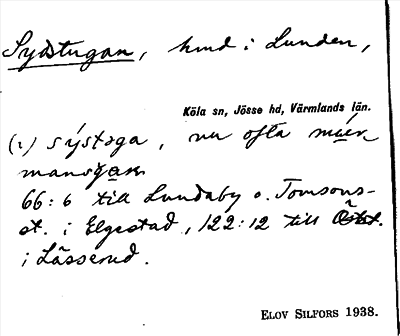 Sydstugan, hmd i Lunden,
Köla sn, Jösse hd, Värmlands län.
(i) sýstəga, nu ofta
66:6 till Lundaby o. Tomsons-
st. i Elgestad, 122:12 till
i Lässerud.
ELOV SILFORS 1938.